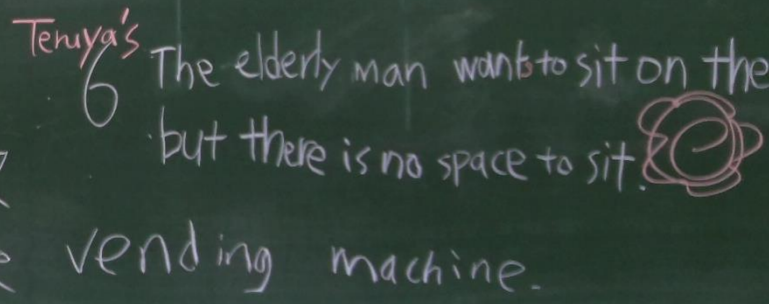 Teruya's
6 The elderly man wants to sit on the
but there is no space to sit.
vending machine.